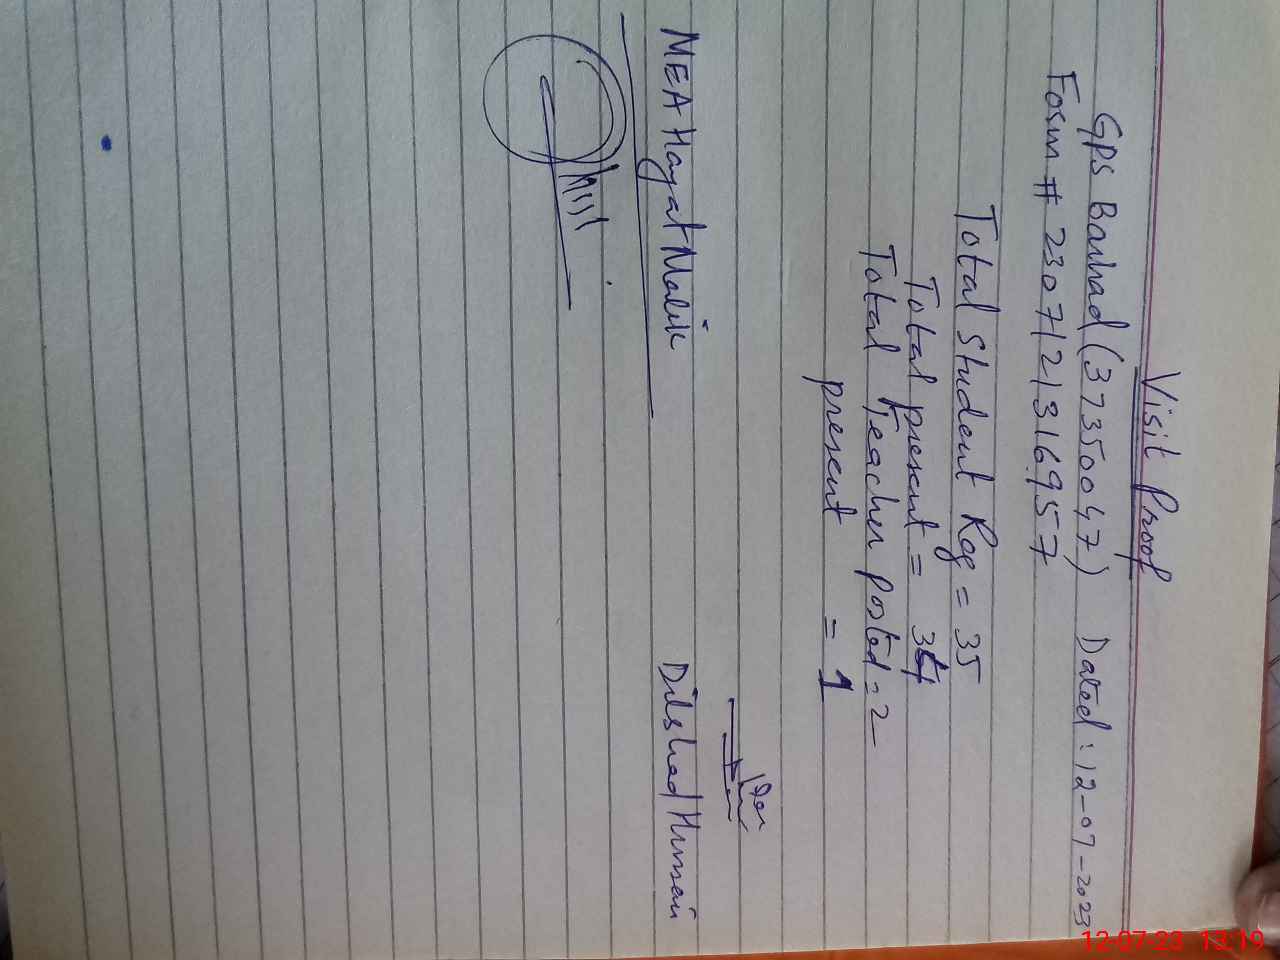 Visit Proof
GPS Banhad (37350047) Dated: 12-07-2023
Form # 2307121316957
Total Student Reg = 35
Total present = 34
Total Teacher posted = 2
present = 1
MEA Hayat Malik Dilshad Hussain
12-07-23 13:19